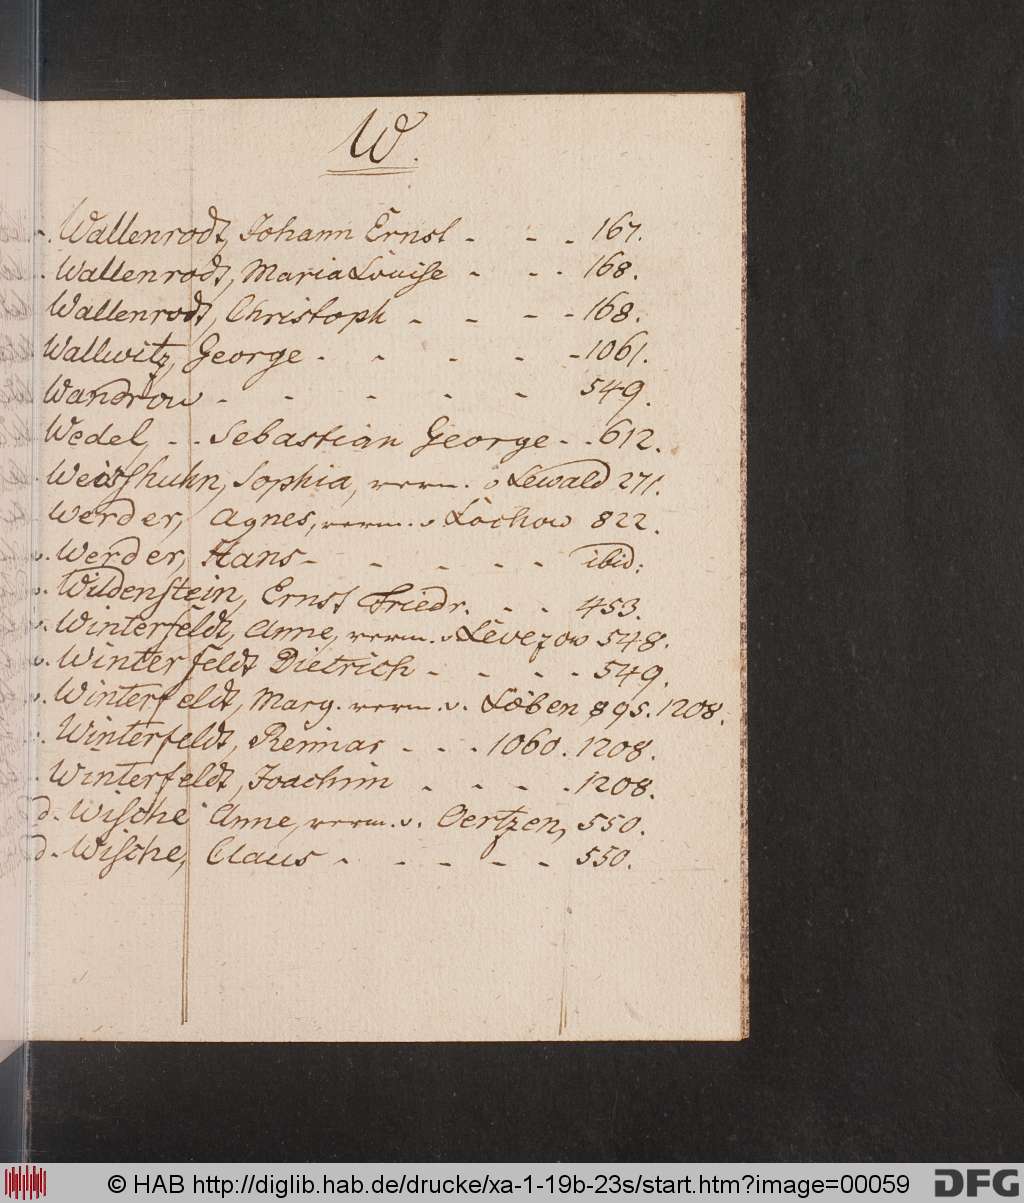 W.
v. Wallenrodt, Johann Ernst - - - 167.
Wallenrodt, Maria Louise - - - 168.
Wallenrodt, Christoph - - - - 168.
Wallwitz, George - - - - - 1061.
Wandrow - - - - - 549.
Wedel, - - Sebastian George - - 612.
Weisshuhn, Sophia, verm. v Lewald 271.
Werder, Agnes, verm. v Lochow 822.
v. Werder, Hans - - - - - - ibid:
v. Wildenstein, Ernst Friedr. - - 453.
v. Winterfeldt, Anne, verm. v Levezow 548.
v. Winterfeldt Dietrich - - - - 549.
v. Winterfeldt, Marg. verm. v. Löben 895. 1208.
v. Winterfeldt, Reimar - - - 1060. 1208.
Winterfeldt, Joachim - - - - 1208.
d. Wische Anne, verm. v. Oertzen, 550.
d. Wische, Claus - - - - - 550.
© HAB http://diglib.hab.de/drucke/xa-1-19b-23s/start.htm?image=00059
DFG